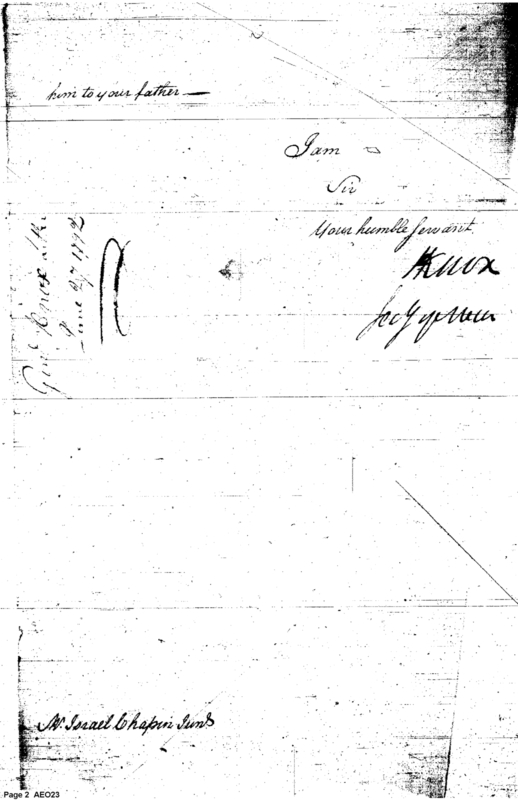 him to your father —
I am
Sir
Your humble Servant
HKnox
Secy of War
Genl Knox
June 27 1792
Mr. Israel Chapin Junr
Page 2 AEO23